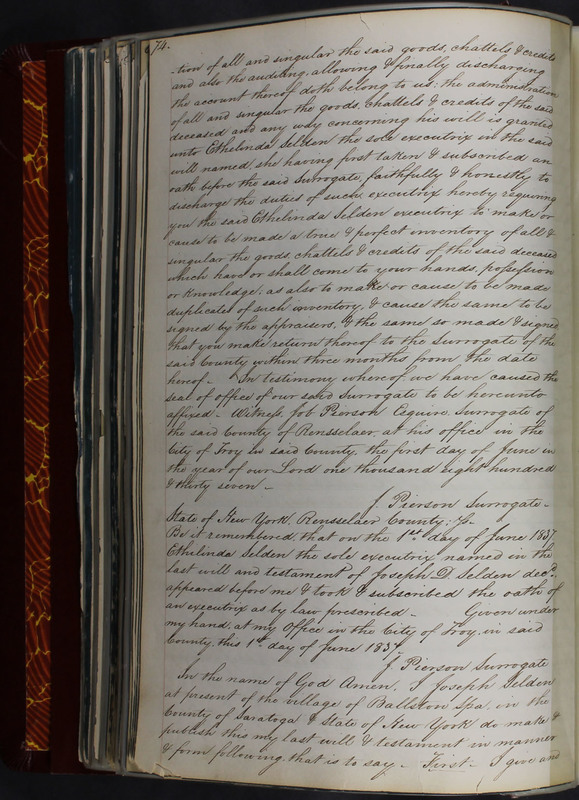 74.
-tion of all and singular the said goods, chattels & credits
and also the auditing, allowing & finally discharging
the account thereof doth belong to us; the administration
of all and singular the goods, chattels & credits of the said
deceased and any way concerning his will is granted
unto Ethelinda Selden the sole executrix in the said
will named, she having first taken & subscribed an
oath before the said Surrogate, faithfully & honestly to
discharge the duties of such executrix hereby requiring
you the said Ethelinda Selden executrix to make or
cause to be made a true & perfect inventory of all &
singular the goods, chattels & credits of the said deceased
which have or shall come to your hands, possession
or knowledge, as also to make or cause to be made
duplicates of such inventory, & cause the same to be
signed by the appraisers, & the same so made & signed
that you make return thereof to the Surrogate of the
said County within three months from the date
hereof - In testimony whereof we have caused the
seal of office of our said Surrogate to be hereunto
affixed - Witness, Job Pierson Esquire, Surrogate of
the said County of Rensselaer, at his office in the
City of Troy in said County, the first day of June in
the year of our Lord one thousand eight hundred
& thirty seven -
J. Pierson Surrogate -
State of New York, Rensselaer County: Ss.
Be it remembered, that on the 1st day of June 1837
Ethelinda Selden the sole executrix named in the
last will and testament of Joseph D. Selden decd.
appeared before me & took & subscribed the oath of
an executrix as by law prescribed - Given under
my hand, at my Office in the City of Troy, in said
County, this 1st day of June 1837.
J. Pierson Surrogate
In the name of God Amen, I Joseph Selden
at present of the village of Ballston Spa, in the
County of Saratoga & State of New York do make &
publish this my last will & testament in manner
& form following, that is to say - First - I give and